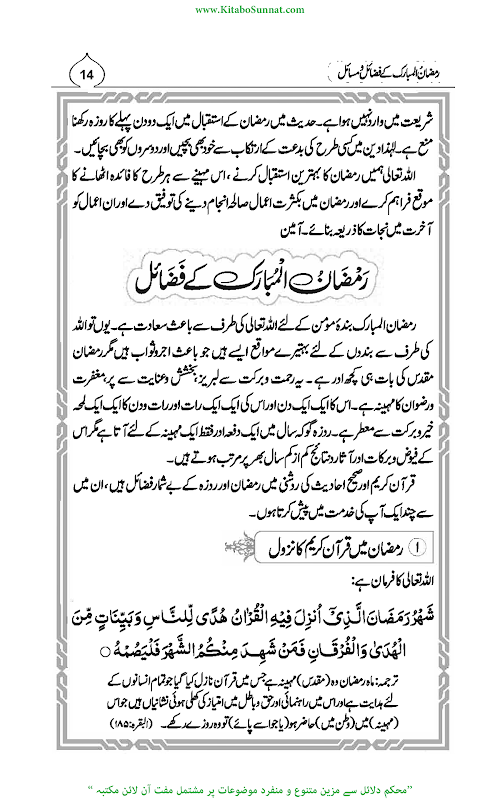 www.KitaboSunnat.com
رمضان المبارک کے فضائل ومسائل
14
شریعت میں وارد نہیں ہوا ہے۔ حدیث میں رمضان کے استقبال میں ایک دو دن پہلے کا روزہ رکھنا
منع ہے۔ لہٰذا دین میں کسی طرح کی بدعت کے ارتکاب سے خود بھی بچیں اور دوسروں کو بھی بچائیں۔
اللہ تعالیٰ ہمیں رمضان کا بہترین استقبال کرنے، اس مہینے سے ہر طرح کا فائدہ اٹھانے کا
موقع فراہم کرے اور رمضان میں بکثرت اعمال صالحہ انجام دینے کی توفیق دے اور ان اعمال کو
آخرت میں نجات کا ذریعہ بنائے۔ آمین
رَمْضَانُ الْمُبَارَک کے فَضَائل
رمضان المبارک بندۂ مؤمن کے لئے اللہ تعالیٰ کی طرف سے باعث سعادت ہے۔ یوں تو اللہ
کی طرف سے بندوں کے لئے بہتیرے مواقع ایسے ہیں جو باعث اجر و ثواب ہیں مگر رمضان
مقدس کی بات ہی کچھ اور ہے۔ یہ رحمت و برکت سے لبریز، بخشش و عنایت سے پر، مغفرت
و رضوان کا مہینہ ہے۔ اس کا ایک ایک دن اور اس کی ایک ایک رات اور رات و دن کا ایک ایک لمحہ
خیر و برکت سے معطر ہے۔ روزہ گو کہ سال میں ایک دفعہ اور فقط ایک مہینہ کے لئے آتا ہے مگر اس
کے فیوض و برکات اور آثار و نتائج کم از کم سال بھر پر مرتب ہوتے ہیں۔
قرآن کریم اور صحیح احادیث کی روشنی میں رمضان اور روزہ کے بے شمار فضائل ہیں، ان میں
سے چند ایک آپ کی خدمت میں پیش کرتا ہوں۔
۱ رمضان میں قرآن کریم کا نزول
اللہ تعالیٰ کا فرمان ہے:
شَهْرُ رَمَضَانَ الَّذِيْٓ اُنْزِلَ فِيْهِ الْقُرْاٰنُ هُدًى لِّلنَّاسِ وَبَيِّنَاتٍ مِّنَ
الْهُدٰى وَالْفُرْقَانِ فَمَنْ شَهِدَ مِنْكُمُ الشَّهْرَ فَلْيَصُمْهُ ○
ترجمہ: ماہ رمضان وہ (مقدس) مہینہ ہے جس میں قرآن نازل کیا گیا جو تمام انسانوں کے
لئے ہدایت ہے اور اس میں راہنمائی اور حق و باطل میں امتیاز کی کھلی ہوئی نشانیاں ہیں جو اس
(مہینہ) میں (وطن میں) حاضر ہو (یا جو اسے پائے) تو وہ روزے رکھے۔ (البقرہ:۱۸۵)
"محکم دلائل سے مزین متنوع و منفرد موضوعات پر مشتمل مفت آن لائن مکتبہ"